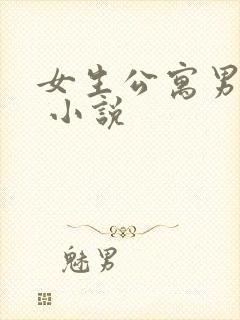 女生公寓男
小說
魅男